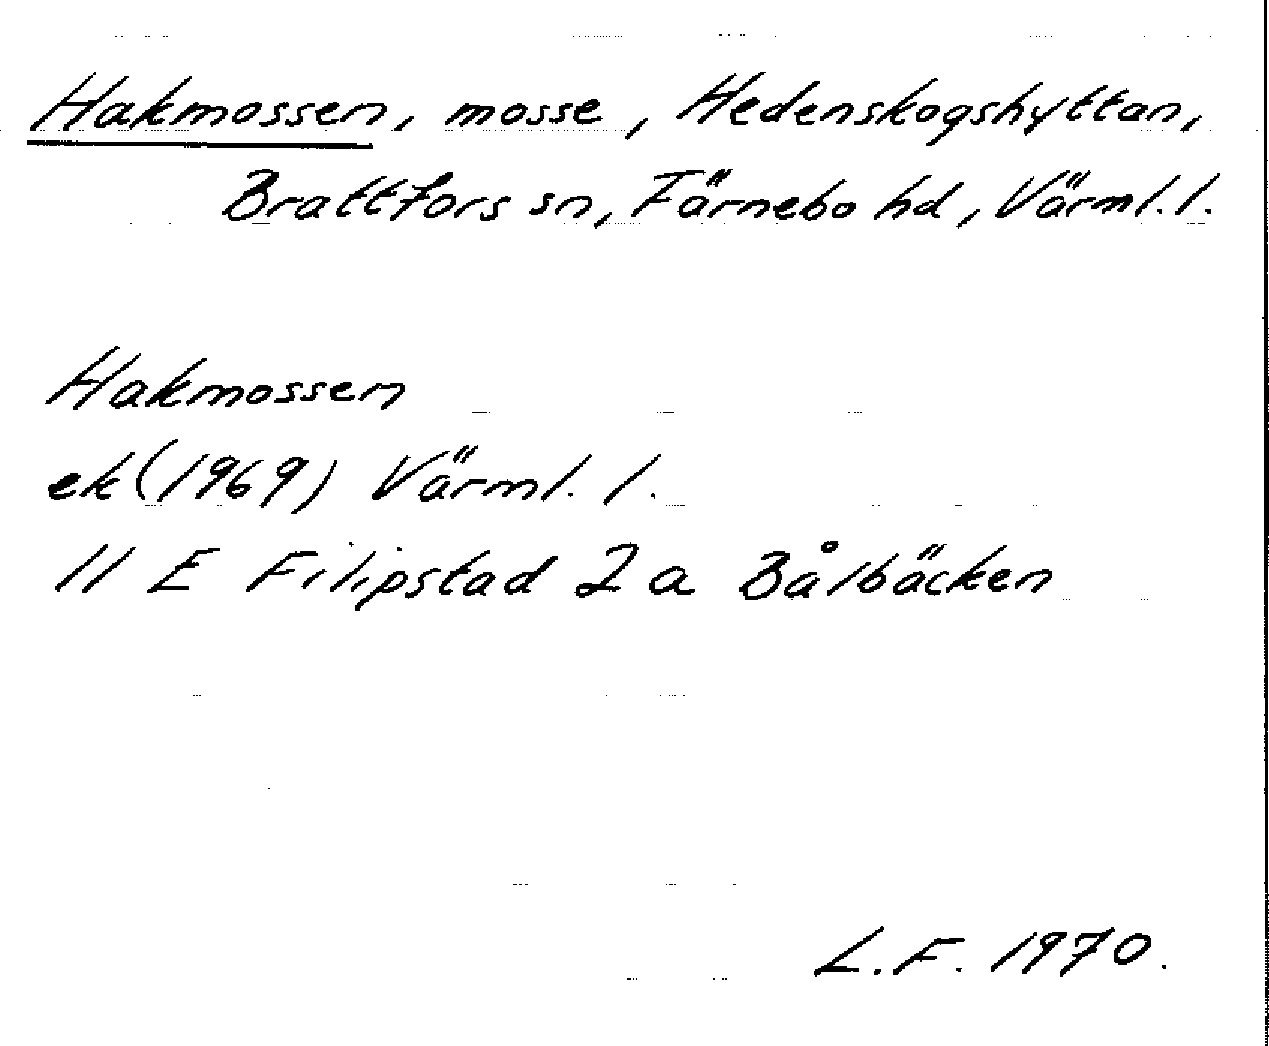 Hakmossen, mosse, Hedenskogshyttan,
Brattfors sn, Färnebo hd, Värml. l.
Hakmossen
ek (1969) Värml. l.
11 E Filipstad 2 a Bålbäcken
L.F. 1970.